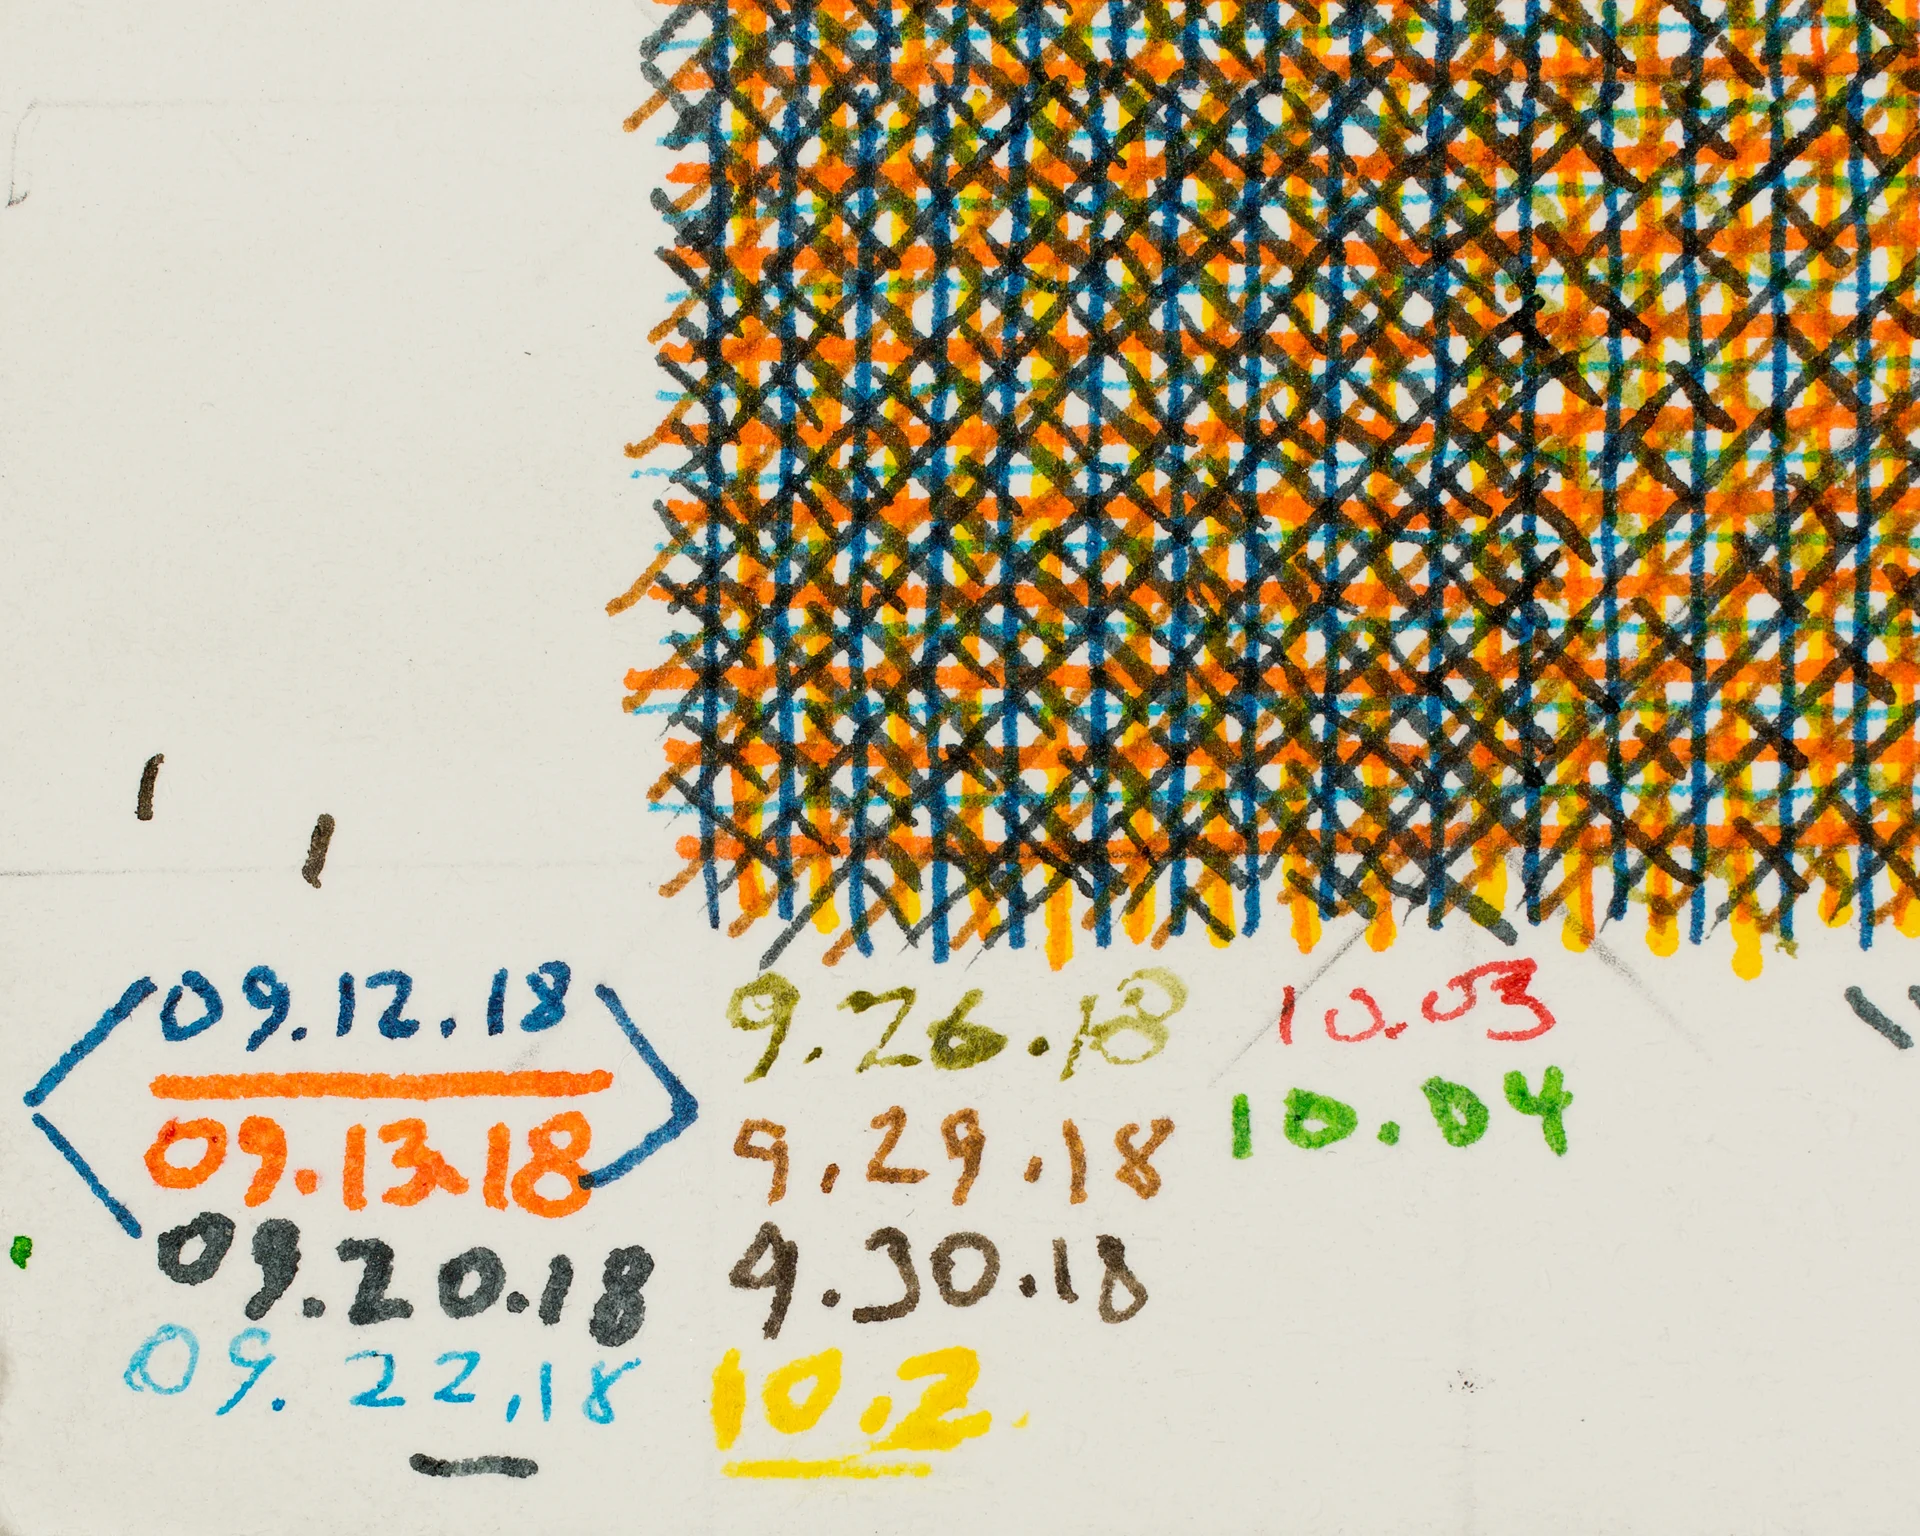 09.12.18
09.13.18
09.20.18
09.22.18
9.26.18
9.29.18
9.30.18
10.2
10.03
10.04